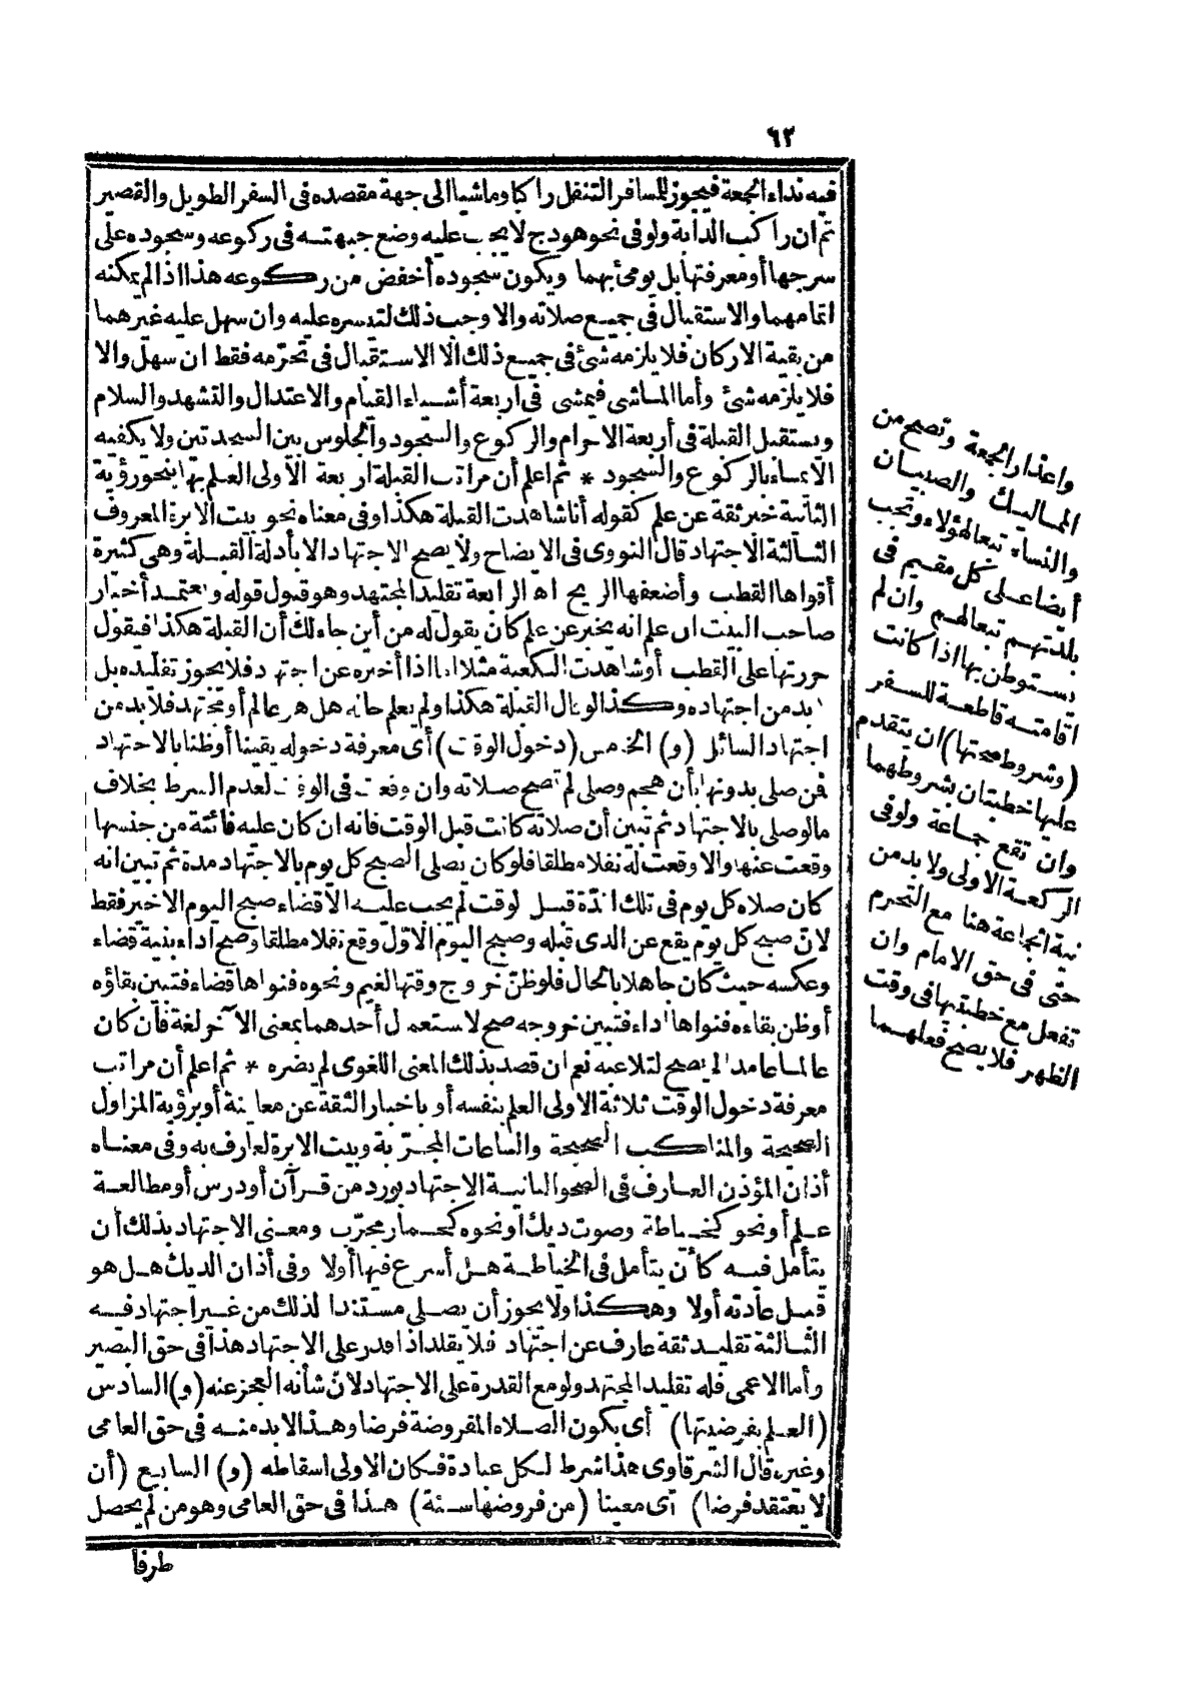 ٦٢
فيه نداء الجمعة فيجوز للمسافر التنفل راكبا وماشيا الى جهة مقصده فى السفر الطويل والقصير
ثم ان راكب الدابة ولو فى نحو هودج لا يجب عليه وضع جبهته فى ركوعه وسجوده على
سرجها أو معرفتها بل يومئ بهما ويكون سجوده أخفض من ركوعه هذا اذا لم يمكنه
اتمامهما والاستقبال فى جميع صلاته والا وجب ذلك لتيسره عليه وان سهل عليه غيرهما
من بقية الاركان فلا يلزمه شئ فى جميع ذلك الا الاستقبال فى تحرّمه فقط ان سهل والا
فلا يلزمه شئ وأما الماشى فيمشى فى أربعة أشياء القيام والاعتدال والتشهد والسلام
ويستقبل القبلة فى أربعة الاحرام والركوع والسجود والجلوس بين السجدتين ولا يكفيه
الايماء بالركوع والسجود * ثم اعلم أن مراتب القبلة أربعة الأولى العلم بها بنحو رؤية
الثانية خبر ثقة عن علم كقوله أنا شاهدت القبلة هكذا وفى معناه نحو بيت الابرة المعروف
الثالثة الاجتهاد قال النووى فى الايضاح ولا يصح الاجتهاد الا بأدلة القبلة وهى كثيرة
أقواها القطب وأضعفها الريح اه الرابعة تقليد المجتهد وهو قبول قوله ويعتمد أخبار
صاحب البيت ان علم انه يخبر عن علم كان يقول له من أين جاء لك أن القبلة هكذا فيقول
حررتها على القطب أو شاهدت الكعبة مثلا اما اذا أخبره عن اجتهاد فلا يجوز تقليده بل
لا بد من اجتهاده وكذا لو قال القبلة هكذا ولم يعلم حاله هل هو عالم أو مجتهد فلا بد من
اجتهاد السائل (و) الخامس (دخول الوقت) أى معرفة دخوله يقينا أو ظنا بالاجتهاد
فمن صلى بدونها بأن هجم وصلى لم تصح صلاته وان وقعت فى الوقت لعدم الشرط بخلاف
مالو صلى بالاجتهاد ثم تبين أن صلاته كانت قبل الوقت فانه ان كان عليه فائتة من جنسها
وقعت عنها والا وقعت له نفلا مطلقا فلو كان يصلى الصبح كل يوم بالاجتهاد مدة ثم تبين انه
كان صلاه كل يوم فى تلك المدّة قبل لوقت لم يجب عليه الا قضاء صبح اليوم الاخير فقط
لان صبح كل يوم يقع عن الذى قبله وصبح اليوم الاوّل وقع نفلا مطلقا وصح أداء بنية قضاء
وعكسه حيث كان جاهلا بالحال فلو ظنّ خروج وقتها لغيم ونحوه فنواها قضاء فتبين بقاؤه
أو ظن بقاءه فنواها أداء فتبين خروجه صح لاستعمال أحدهما بمعنى الآخر لغة فان كان
عالما عامدا لم يصح لتلاعبه نعم ان قصد بذلك المعنى اللغوى لم يضره * ثم اعلم أن مراتب
معرفة دخول الوقت ثلاثة الاولى العلم بنفسه أو باخبار الثقة عن معاينة أو برؤية المزاول
الصحيحة والمناكب الصحيحة والساعات المجرّبة وبيت الابرة لعارف به وفى معناه
أذان المؤذن العارف فى الصحو الثانية الاجتهاد بورد من قرآن أو درس أو مطالعة
علم أو نحو كخياطة وصوت ديك أو نحوه كحمار مجرّب ومعنى الاجتهاد بذلك أن
يتأمل فيه كأن يتأمل فى الخياطة هل أسرع فيها أولا وفى أذان الديك هل هو
قبل عادته أولا وهكذا ولا يجوز أن يصلى مستندا لذلك من غير اجتهاد فيه
الثالثة تقليد ثقة عارف عن اجتهاد فلا يقلد اذا قدر على الاجتهاد هذا فى حق البصير
وأما الاعمى فله تقليد المجتهد ولو مع القدرة على الاجتهاد لانّ شأنه العجز عنه (و) السادس
(العلم بفرضيتها) أى بكون الصلاة المفروضة فرضا وهذا لا بد منه فى حق العامى
وغيره قال الشرقاوى هذا شرط لكل عبادة فكان الاولى اسقاطه (و) السابع (أن
لا يعتقد فرضا) أى معينا (من فروضها سنة) هذا فى حق العامى وهو من لم يحصل
طرفا
واعذار الجمعة وتصح من
المماليك والصبيان
والنساء تبعا لهؤلاء وتجب
أيضا على كل مقيم فى
بلدتهم تبعا لهم وان لم
يستوطن بها اذا كانت
اقامته قاطعة للسفر
(وشروط صحتها) ان يتقدم
عليها خطبتان بشروطهما
وان تقع جماعة ولو فى
الركعة الاولى ولا بد من
نية الجماعة هنا مع التحرم
حتى فى حق الامام وان
تفعل مع خطبتيها فى وقت
الظهر فلا يصح فعلهما